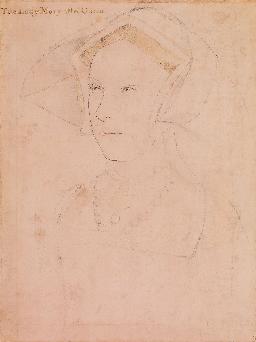 The Lady Mary after Queen